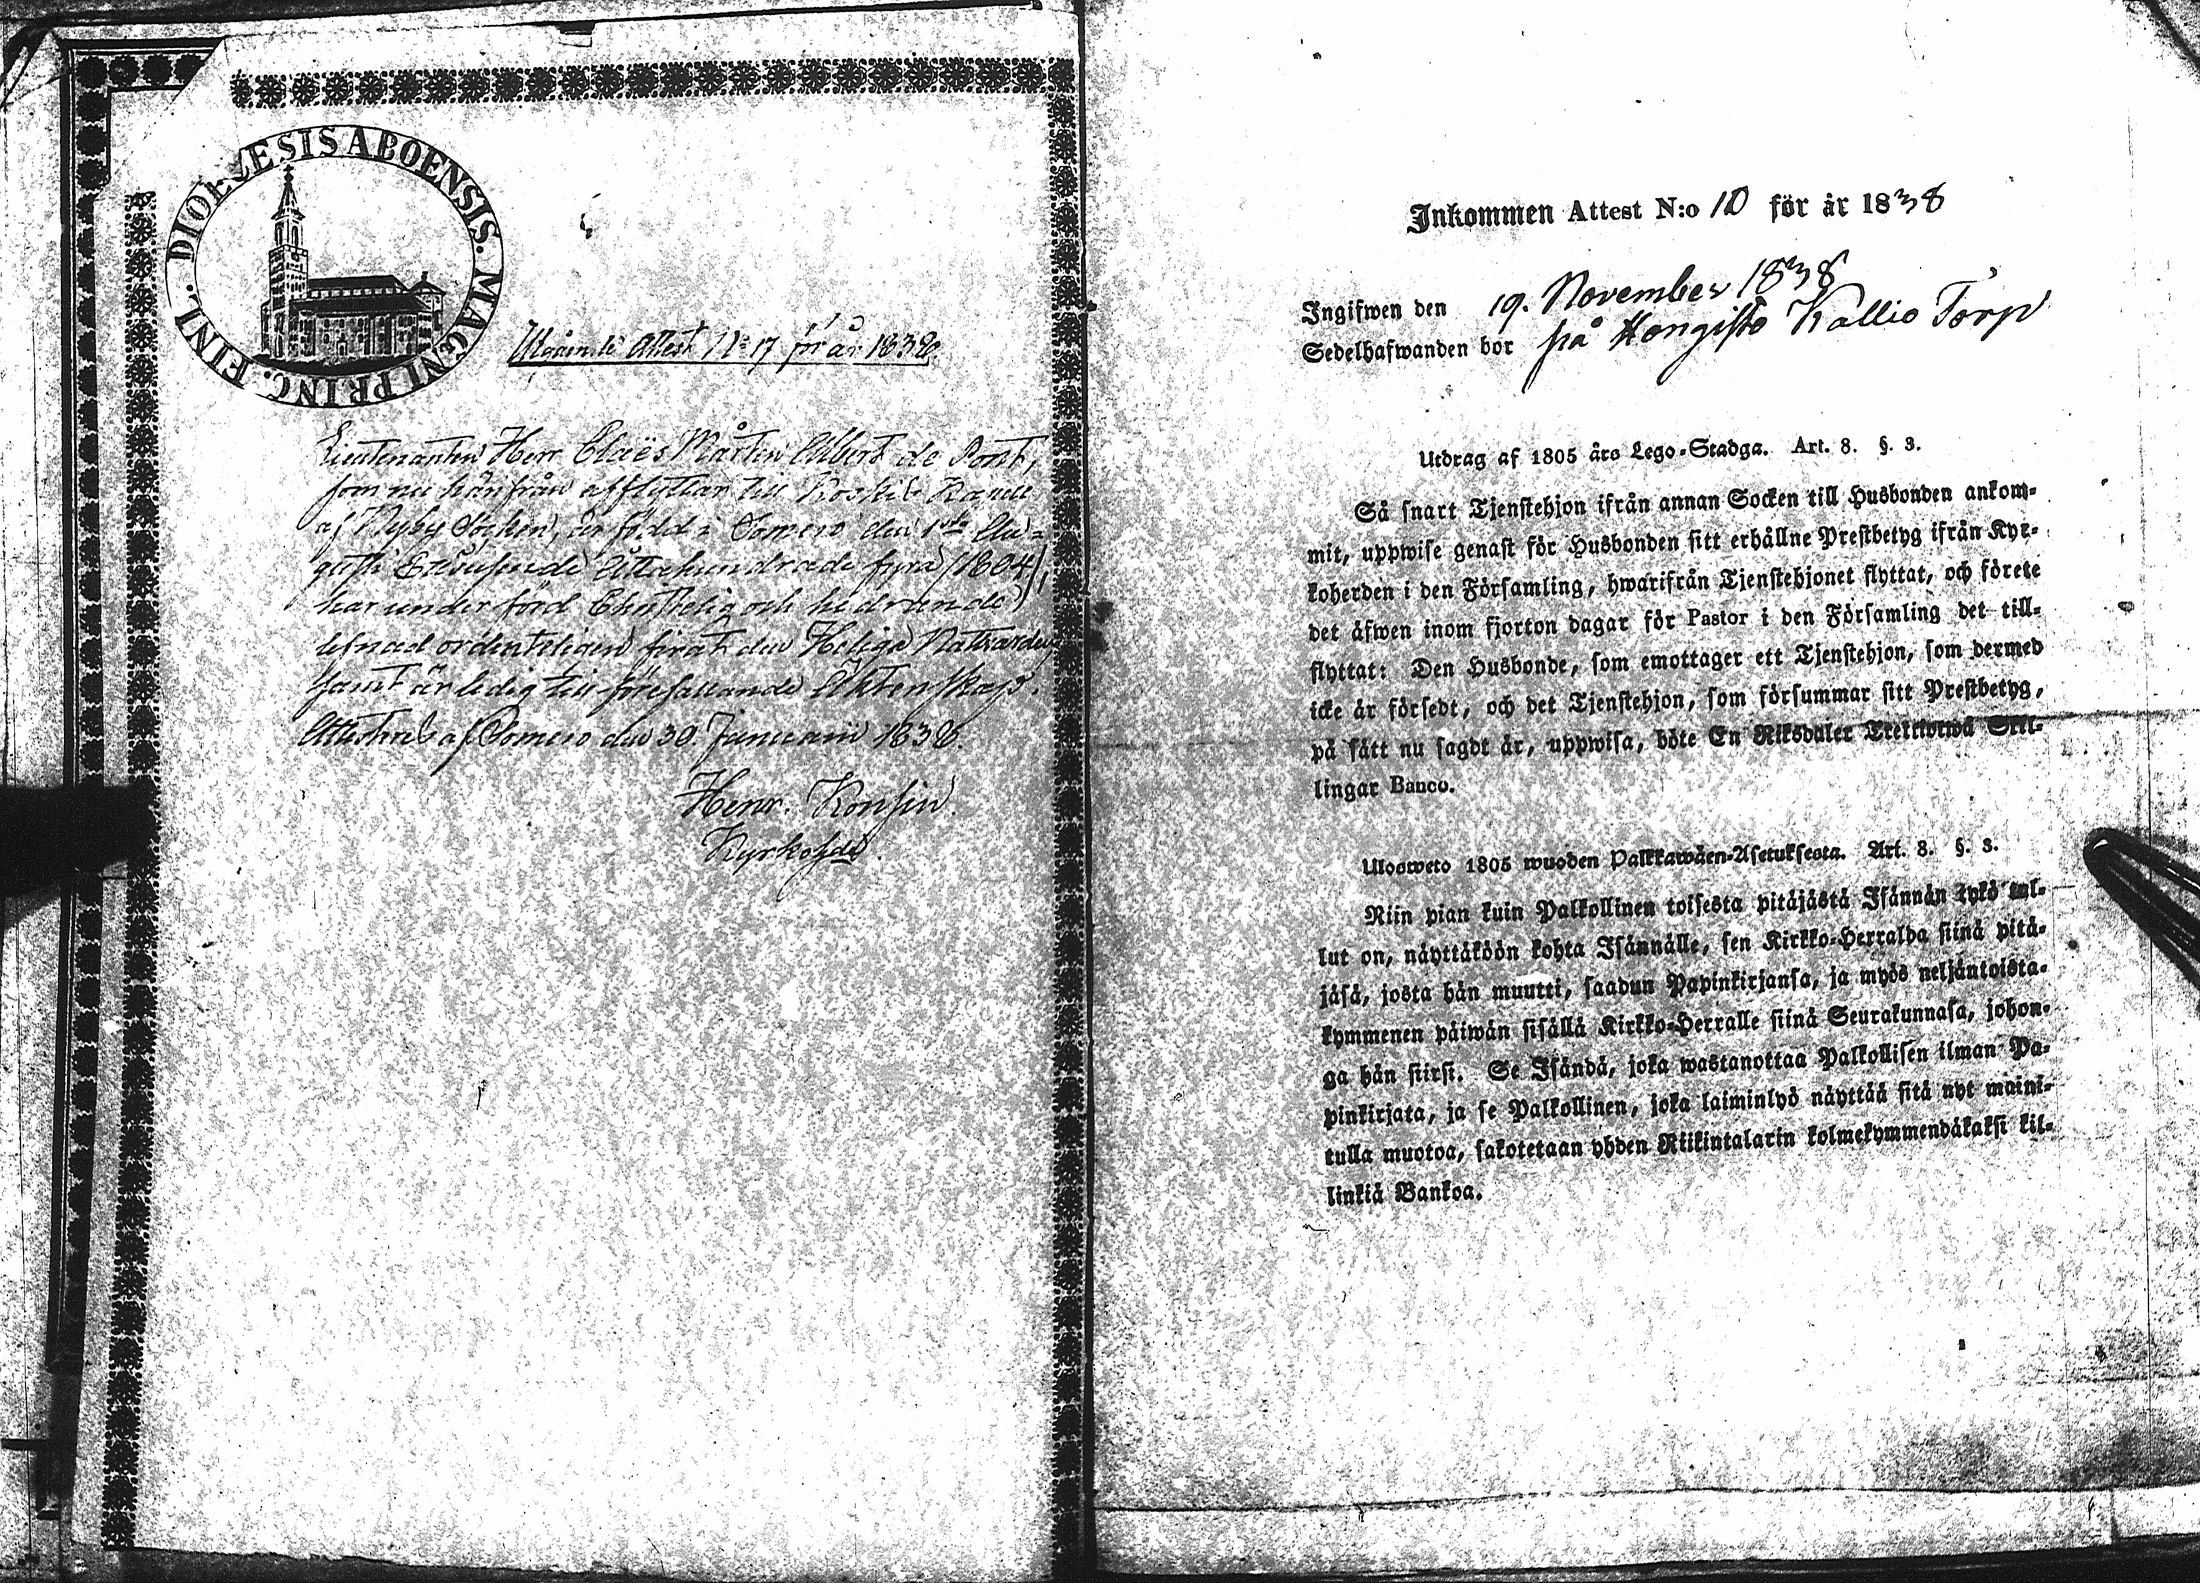 DIOECESIS ABOENSIS. MAGNI PRINC. FINL.
Utgående Attest No 17 för år 1838.
Lieutenanten Herr Claës Mårten Albert de Pont,
som nu härifrån afflyttar till Koskis Kapell
af Socken, är född i Somero den 1sta Au=
gusti Ettusende Åttahundrade fyra (1804),
har under förd Christelig och hedrande
lefnad ordenteligen firat den Heliga Nattvarden
samt är ledig till förefallande Äktenskap.
Attesteras af Somero den 30. Januarii 1838.
Henr. Konsin.
Kyrkohde.
Inkommen Attest N:o 10 för år 1838
Ingifwen den 19. November 1838
Sedelhafwanden bor på Kongisto Kallio Torp
Utdrag af 1805 års Lego-Stadga. Art. 8. §. 3.
Så snart Tjenstehjon ifrån annan Socken till Husbonden ankom-
mit, uppwise genast för Husbonden sitt erhållne Prestbetyg ifrån Kyr-
koherden i den Församling, hwarifrån Tjenstehjonet flyttat, och förete
det äfwen inom fjorton dagar för Pastor i den Församling det till-
flyttat: Den Husbonde, som emottager ett Tjenstehjon, som dermed
icke är försedt, och det Tjenstehjon, som försummar sitt Prestbetyg,
på sätt nu sagdt är, uppwisa, böte En Riksdaler Trettiotwå Skil-
lingar Banco.
Ulosweto 1805 wuoden Palkkawäen-Asetuksesta. Art. 8. §. 3.
Niin pian kuin Palkollinen toisesta pitäjästä Isännän tykö tul-
lut on, näyttäköön kohta Isännälle, sen Kirkko-Herralda siinä pitä-
jäsä, josta hän muutti, saadun Papinkirjansa, ja myös neljäntoista-
kymmenen päiwän sisällä Kirkko-Herralle siinä Seurakunnasa, johon-
ga hän siirsi. Se Isändä, joka wastanottaa Palkollisen ilman Pa-
pinkirjata, ja se Palkollinen, joka laiminlyö näyttää sitä nyt maini-
tulla muotoa, sakotetaan yhden Riikintalarin kolmekymmendäkaksi kil-
linkiä Bankoa.